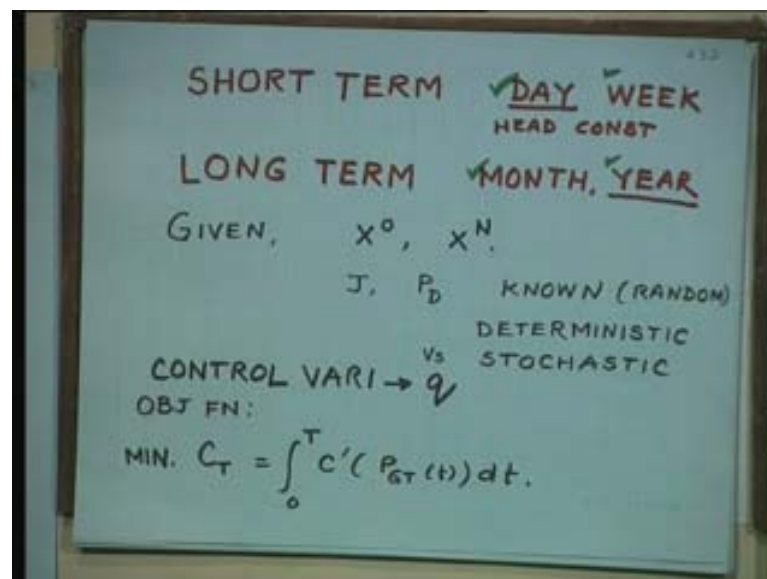 SHORT TERM ✓DAY ✓WEEK
HEAD CONST
LONG TERM ✓MONTH, ✓YEAR
GIVEN, X⁰, Xᴺ.
J, P_D KNOWN (RANDOM)
DETERMINISTIC
Vs STOCHASTIC
CONTROL VARI → q
OBJ FN:
MIN. C_T = ∫₀ᵀ C'(P_GT(t))dt.